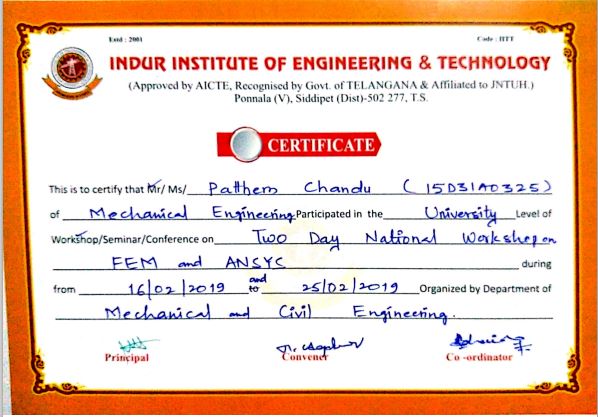 Estd : 2001 Code : IITT
INDUR INSTITUTE OF ENGINEERING & TECHNOLOGY
(Approved by AICTE, Recognised by Govt. of TELANGANA & Affiliated to JNTUH.)
Ponnala (V), Siddipet (Dist)-502 277, T.S.
CERTIFICATE
This is to certify that Mr/ Ms/ Patthem Chandu (15D31A0325)
of Mechanical Engineering Participated in the University Level of
Workshop/Seminar/Conference on Two Day National Workshop on
FEM and ANSYS during
from 16/02/2019 and to 25/02/2019 Organized by Department of
Mechanical and Civil Engineering.
Principal Convener Co -ordinator